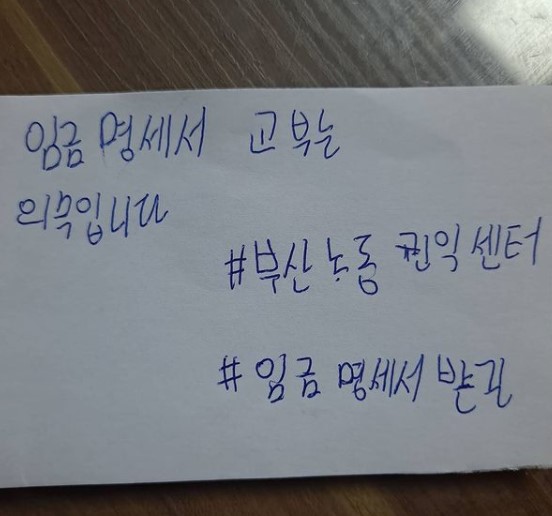 임금 명세서 교부는
의무입니다
#부산노동 권익센터
#임금 명세서 받긴